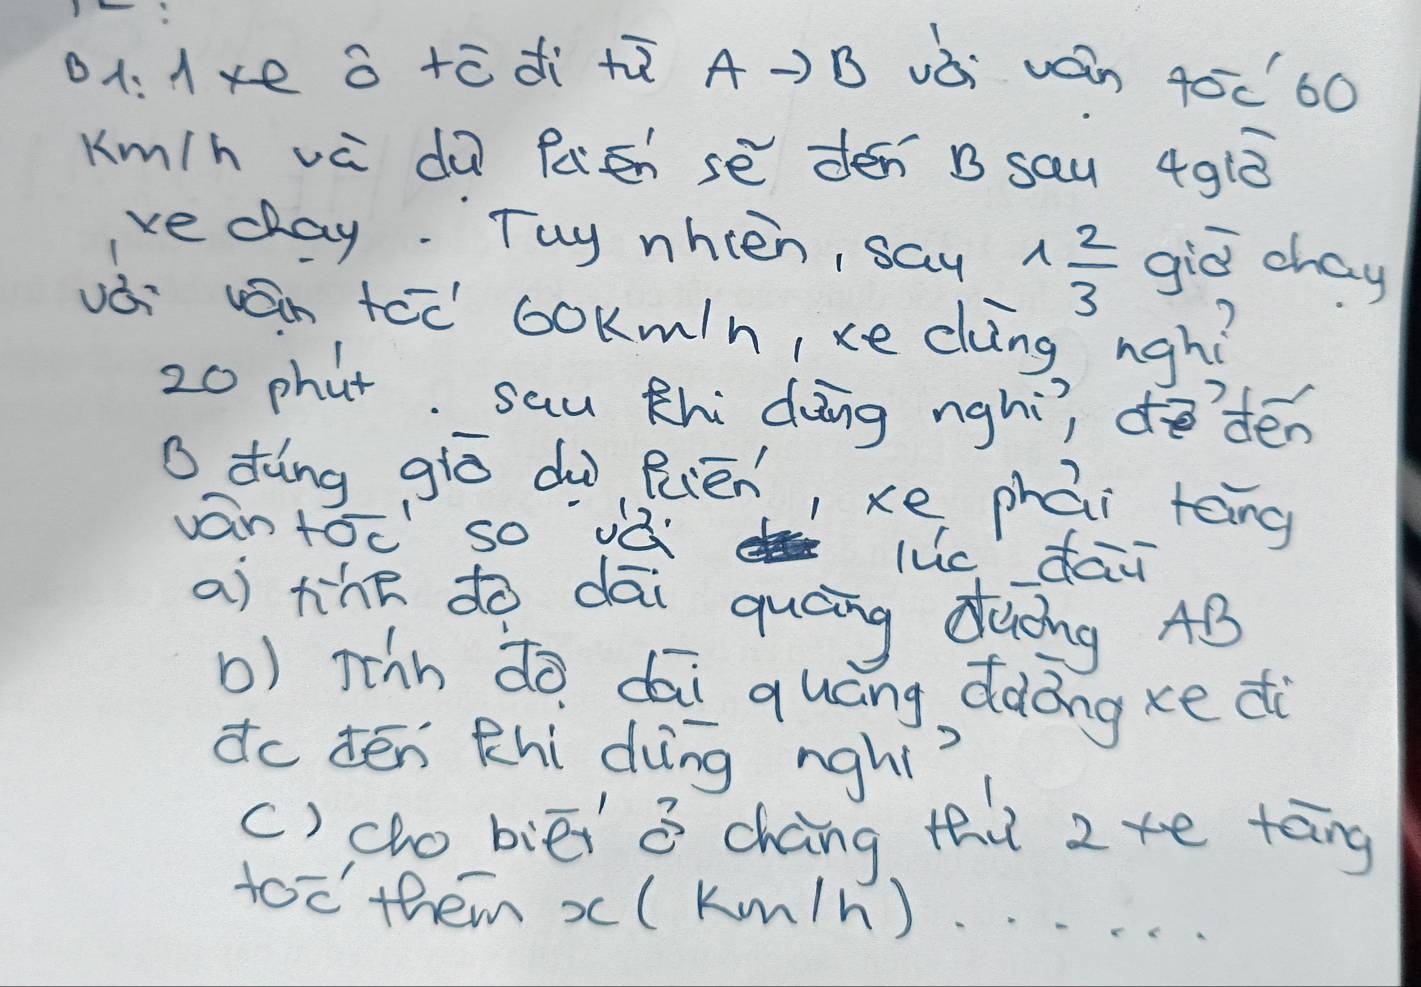 B1: 1 xe ô tô đi từ A → B với vận tốc 60
Km/h và dự kiến sẽ đến B sau 4giờ
xe chạy. Tuy nhiên, sau 1 2/3 giờ chạy
với vận tốc 60Km/h, xe dừng nghỉ
20 phút. sau khi dừng nghỉ, để đến
B đúng giờ dự kiến, xe phải tăng
vận tốc so với lúc đầu
a) tính độ dài quãng đường AB
b) Tính độ dài quãng đường xe đi
đc đến khi dừng nghỉ,
c) cho biết ở chặng thứ 2 xe tăng
tốc thêm x (Km/h) . . . . . .